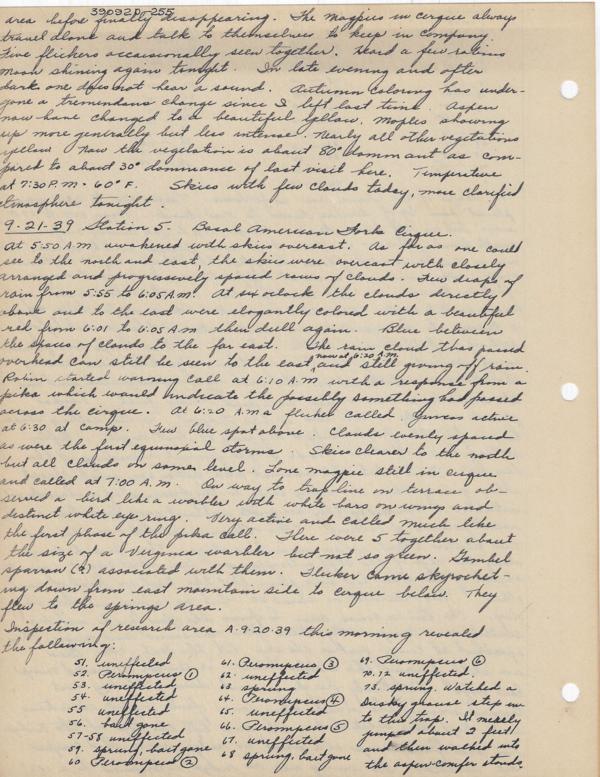 39092D-255
area before finally disappearing. The magpies in cirque always
travel alone and talk to themselves to keep in company.
Five flickers occasionally seen together. Heard a few robins
moon shining again tonight. In late evening and after
dark one does not hear a sound. Autumn coloring has under-
gone a tremendous change since I left last time. Aspen
now have changed to a beautiful yellow, maples showing
up more generally but less intense. Nearly all other vegetations
yellow. Now the vegetation is about 80° dormant as com-
pared to about 30° dormance of last visit here. Temperature
at 7:30 P.M. - 60° F. Skies with few clouds today, more clarified
atmosphere tonight.
9-21-39 Station 5. Basal American Forks Cirque.
At 5:50 A.M. awakened with skies overcast. As far as one could
see to the north and east, the skies were overcast with closely
arranged and progressively spaced rows of clouds. Few drops of
rain from 5:55 to 6:05 A.M. At six oclock the clouds directly
above and to the east were elegantly colored with a beautiful
red from 6:01 to 6:05 A.M then dull again. Blue between
the spaces of clouds to the far east. The rain cloud that passed
overhead can still be seen to the east now at 6:30 A.M. and still giving off rain.
Robin started warning call at 6:10 A.M with a response from a
pika which would indicate the possibly something had passed
across the cirque. At 6:20 A.M a flicker called. Juncos active
at 6:30 at camp. Few blue spot above. Clouds evenly spaced
as were the first equinoxial storms. Skies clearer to the north
but all clouds on same level. Lone magpie still in cirque
and called at 7:00 A.M. On way to trap line on terrace ob-
served a bird like a warbler with white bars on wings and
distinct white eye ring. Very active and called much like
the first phase of the pika call. There were 5 together about
the size of a Virginea warbler but not so green. Gambel
sparrow (?) associated with them. Flicker came skyrocket-
ing down from east mountain side to cirque below. They
flew to the springs area.
Inspection of research area A-9-20-39 this morning revealed
the following:
51. uneffected
52. Peromyscus (1)
53. uneffected
54. uneffected
55 uneffected
56. bait gone
57-58 uneffected
59. sprung, bait gone
60 Peromyscus (2)
61. Peromyscus (3)
62. uneffected
63 sprung
64. Peromyscus (4)
65. uneffected
66. Peromyscus (5)
67. uneffected
68 sprung, bait gone
69. Peromyscus (6)
70-72 uneffected.
73. sprung. Watched a
Dusky grouse step in
to this trap. It merely
jumped about 2 feet
and then walked into
the aspen-conifer stands.